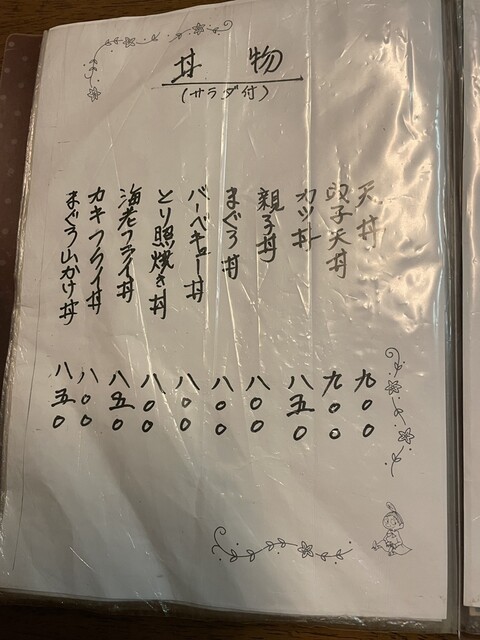 丼物
(サラダ付)
天丼 九〇〇
卵子天丼 九〇〇
カツ丼 八五〇
親子丼 八〇〇
まぐろ丼 八〇〇
バーベキュー丼 八〇〇
とり照焼き丼 八〇〇
海老フライ丼 八五〇
カキフライ丼 八〇〇
まぐろ山かけ丼 八五〇